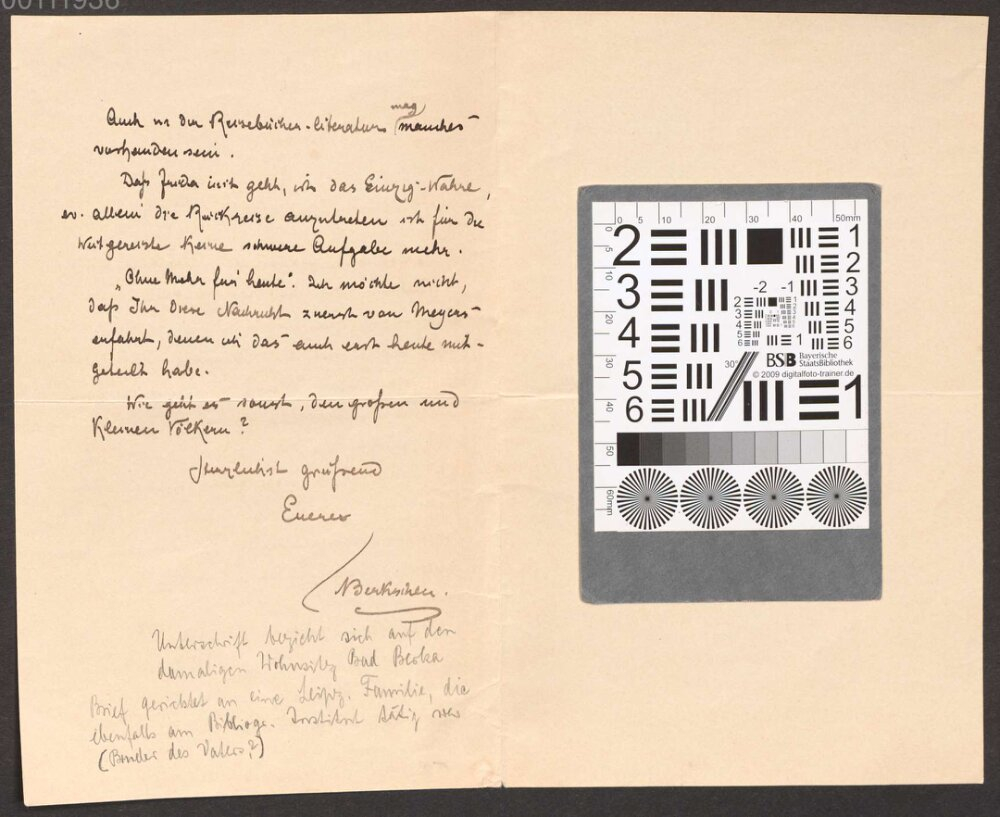 00111936
Auch in der Reisebücher-literatur mag manches
vorhanden sein.
Daß Frieda mit geht, ist das Einzig-Wahre,
ev. allein die Rückreise anzutreten ist für die
Weitgereiste keine schwere Aufgabe mehr.
„Ohne Mehr für heute". Ich möchte nicht,
daß Ihr diese Nachricht zuerst von Meyers
erfahrt, denen ich das auch erst heute mit-
geteilt habe.
Wie geht es sonst, den großen und
kleinen Völkern?
Herzlichst grüßend
Euerer
Berkscher.
Unterschrift bezieht sich auf den
damaligen Wohnsitz Bad Berka
Brief gerichtet an eine Leipz. Familie, die
ebenfalls am Bibliogr. Institut tätig war
(Bruder des Vaters?)
0 5 10 20 30 40 50mm
0 5 10 20 30 40 50 60mm
2 1
3 2
4 3
5 4
6 5
6
-2 -1
2 3 4 5 6
1
30°
BSB Bayerische
StaatsBibliothek
© 2009 digitalfoto-trainer.de
1